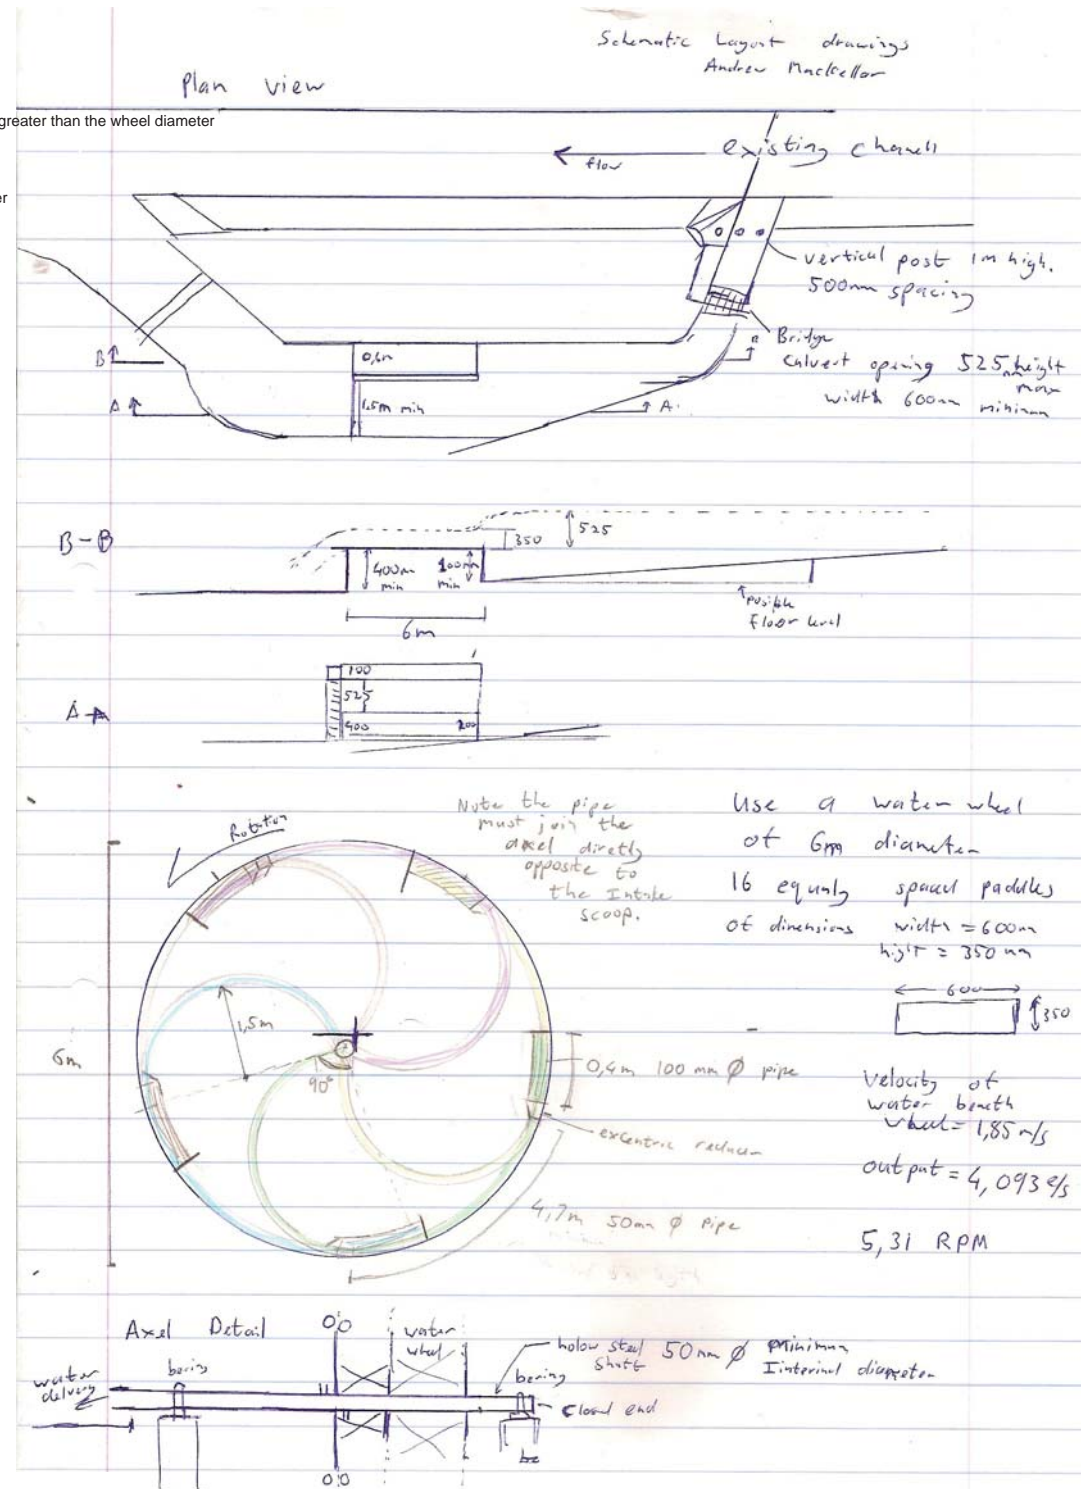 Schematic Layout drawings
Andrew Mackellar
Plan view
greater than the wheel diameter
er
flow
existing channell
vertical post 1m high.
500mm spacing
Bridge
Culvert opening 525mm height
max
width 600mm minimum
B
A
0,6m
1,5m min
A.
B-B
350
525
400mm
min
100mm
min
6m
posible
floor level
A-A
100
525
400
Rotation
Note the pipe
must join the
axel directly
opposite to
the Intake
scoop.
Use a water wheel
of 6m diameter
16 equaly spaced paddles
of dimensions width = 600mm
hight = 350mm
600
350
6m
1,5m
90°
0,4m 100mm Ø pipe
excentric reducer
4,7m 50mm Ø pipe
Velocity of
water beneth
wheel = 1,85 m/s
output = 4,093 l/s
5,31 RPM
Axel Detail
water
wheel
water
delivery
bering
holow steel 50mm Ø minimum
shaft Iinterinal diameter
bering
closed end